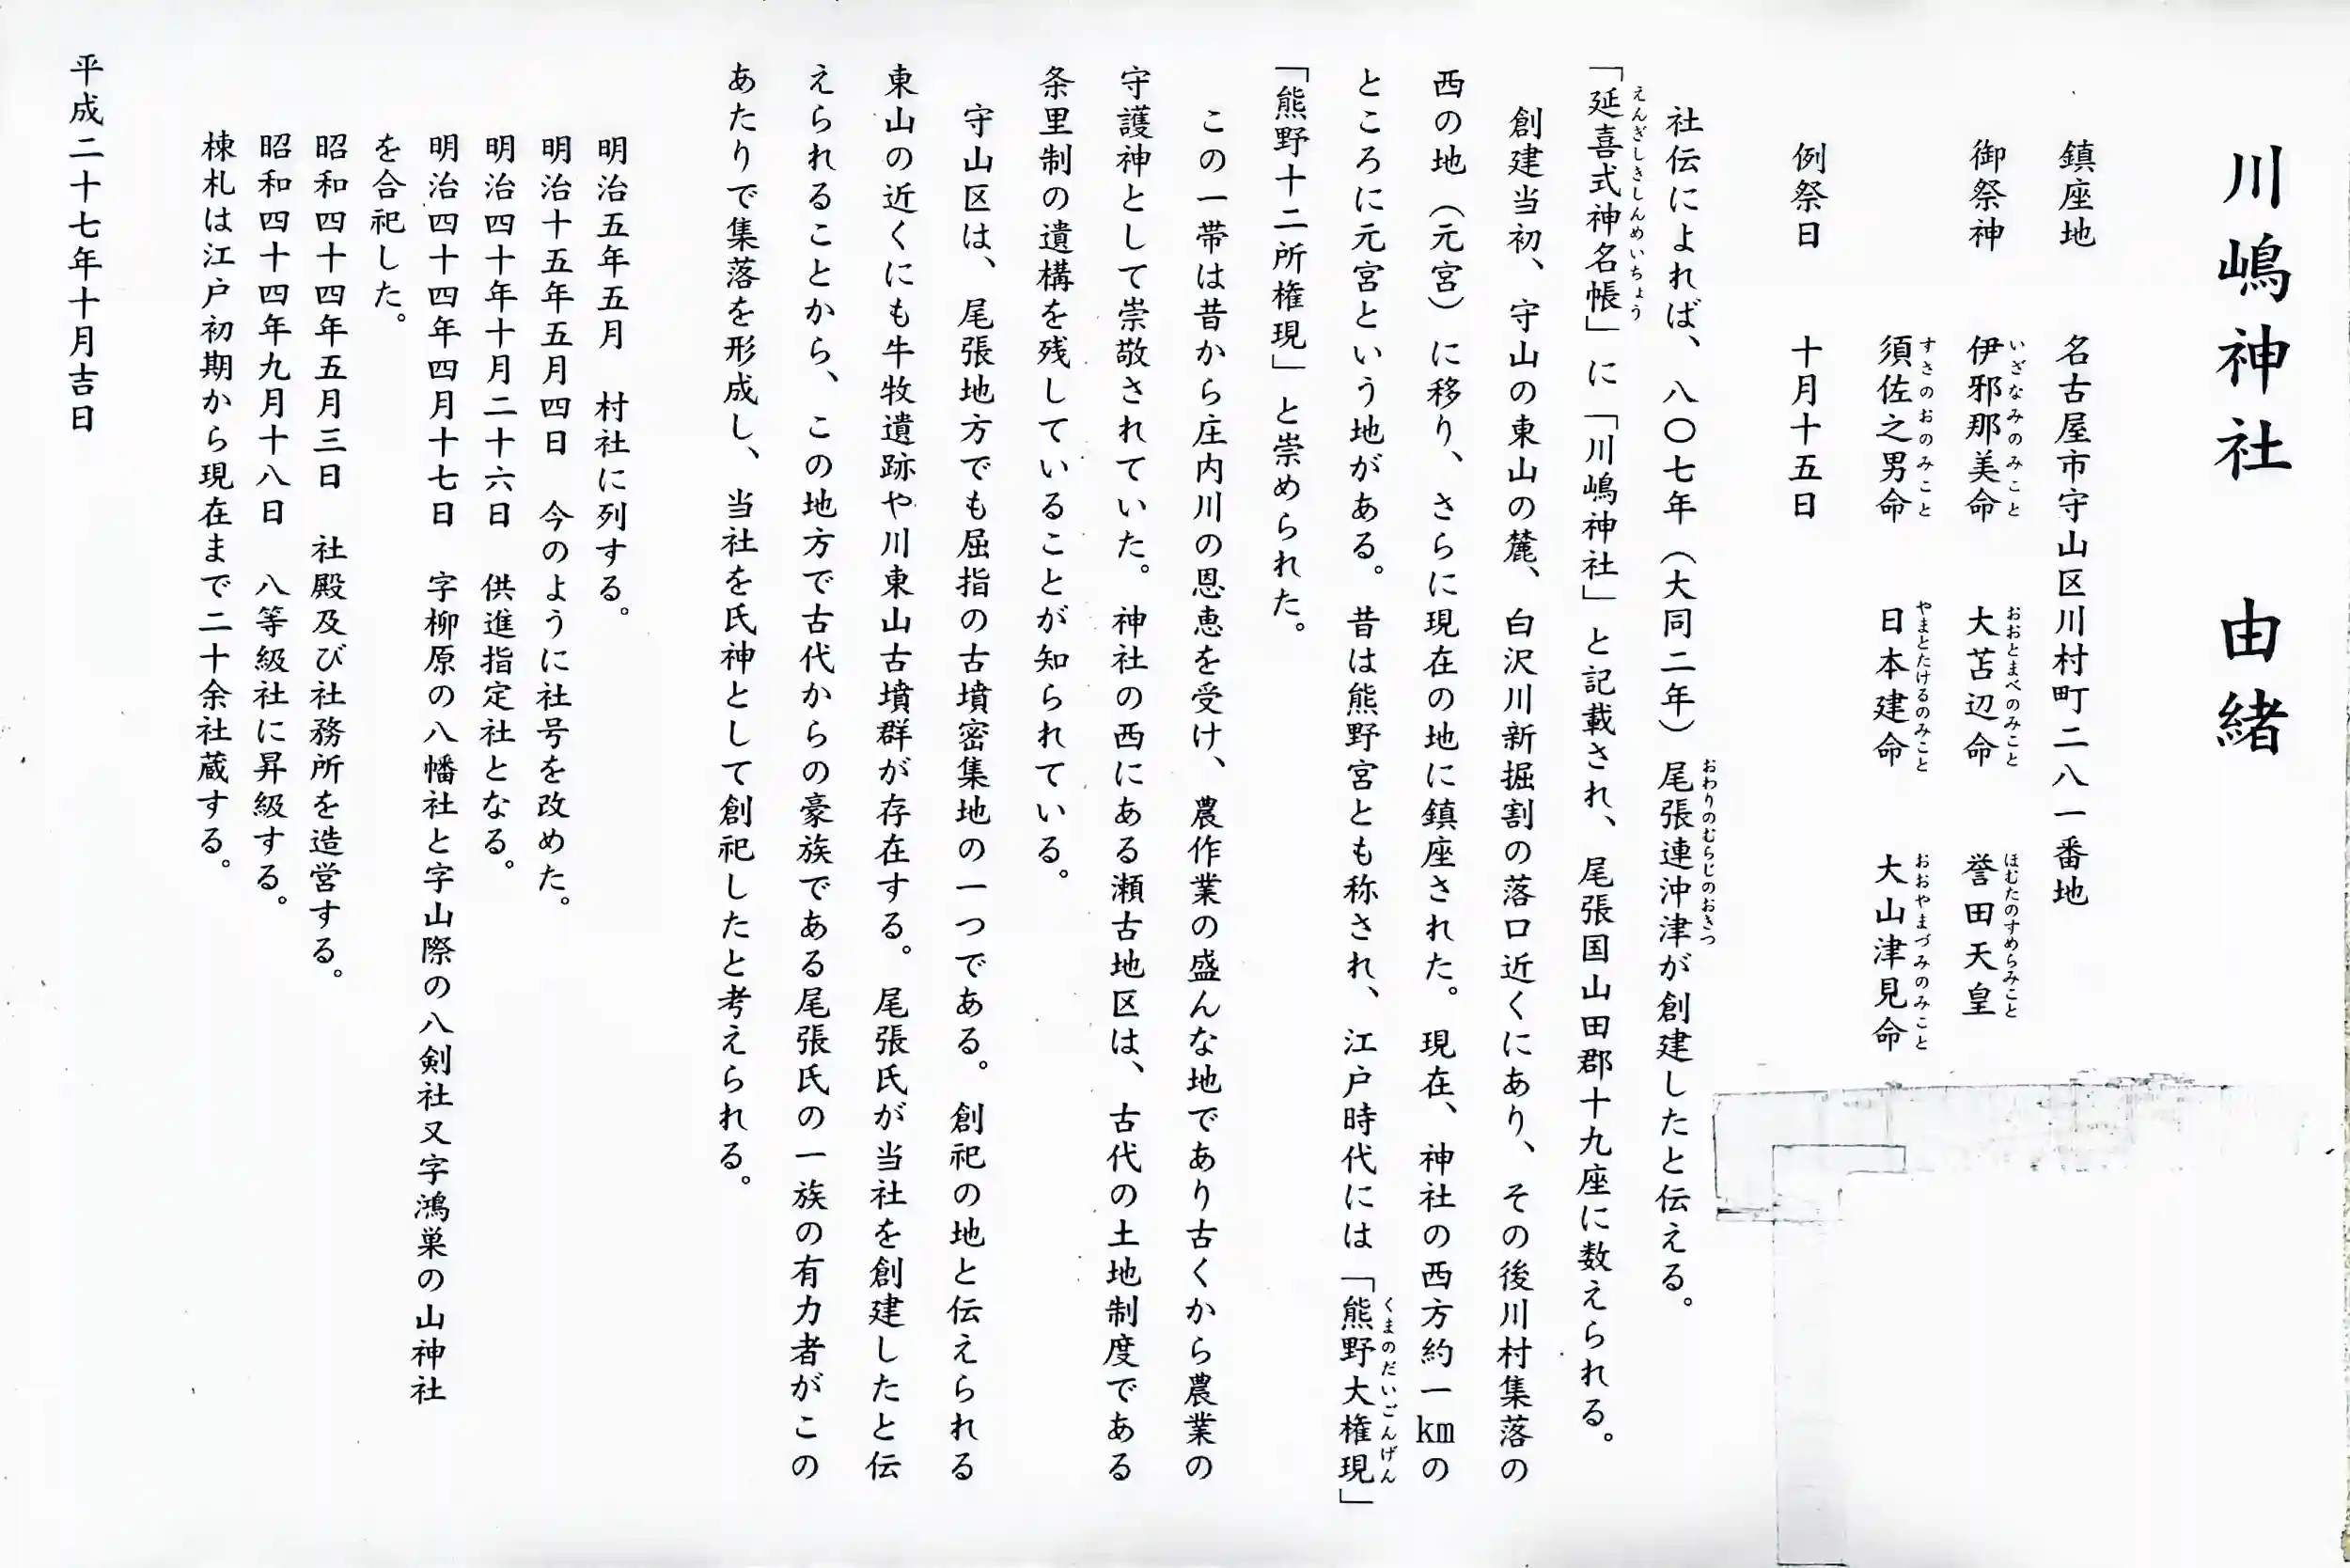 川嶋神社　由緒
鎮座地　名古屋市守山区川村町二八一番地
御祭神　伊邪那美命　大苫辺命　誉田天皇
いざなみのみこと　おおとまべのみこと　ほむたのすめらみこと
須佐之男命　日本建命　大山津見命
すさのおのみこと　やまとたけるのみこと　おおやまづみのみこと
例祭日　十月十五日
社伝によれば、八〇七年（大同二年）尾張連沖津が創建したと伝える。
おわりのむらじのおきつ
「延喜式神名帳」に「川嶋神社」と記載され、尾張国山田郡十九座に数えられる。
えんぎしきしんめいちょう
創建当初、守山の東山の麓、白沢川新掘割の落口近くにあり、その後川村集落の
西の地（元宮）に移り、さらに現在の地に鎮座された。現在、神社の西方約一㎞の
ところに元宮という地がある。昔は熊野宮とも称され、江戸時代には「熊野大権現」
くまのだいごんげん
「熊野十二所権現」と崇められた。
この一帯は昔から庄内川の恩恵を受け、農作業の盛んな地であり古くから農業の
守護神として崇敬されていた。神社の西にある瀬古地区は、古代の土地制度である
条里制の遺構を残していることが知られている。
守山区は、尾張地方でも屈指の古墳密集地の一つである。創祀の地と伝えられる
東山の近くにも牛牧遺跡や川東山古墳群が存在する。尾張氏が当社を創建したと伝
えられることから、この地方で古代からの豪族である尾張氏の一族の有力者がこの
あたりで集落を形成し、当社を氏神として創祀したと考えられる。
明治五年五月　村社に列する。
明治十五年五月四日　今のように社号を改めた。
明治四十年十月二十六日　供進指定社となる。
明治四十四年四月十七日　字柳原の八幡社と字山際の八剣社又字鴻巣の山神社
を合祀した。
昭和四十四年五月三日　社殿及び社務所を造営する。
昭和四十四年九月十八日　八等級社に昇級する。
棟札は江戸初期から現在まで二十余社蔵する。
平成二十七年十月吉日